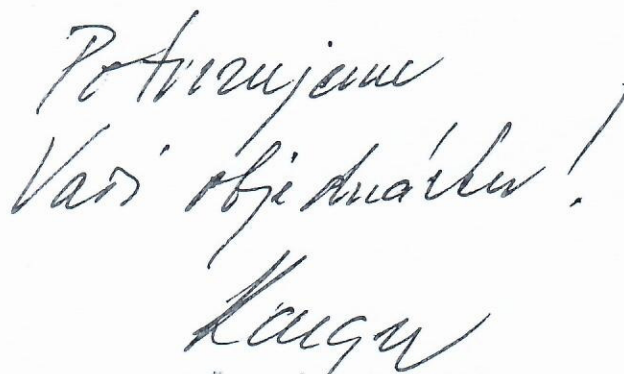 Potvrzujeme
Vaši objednávku!